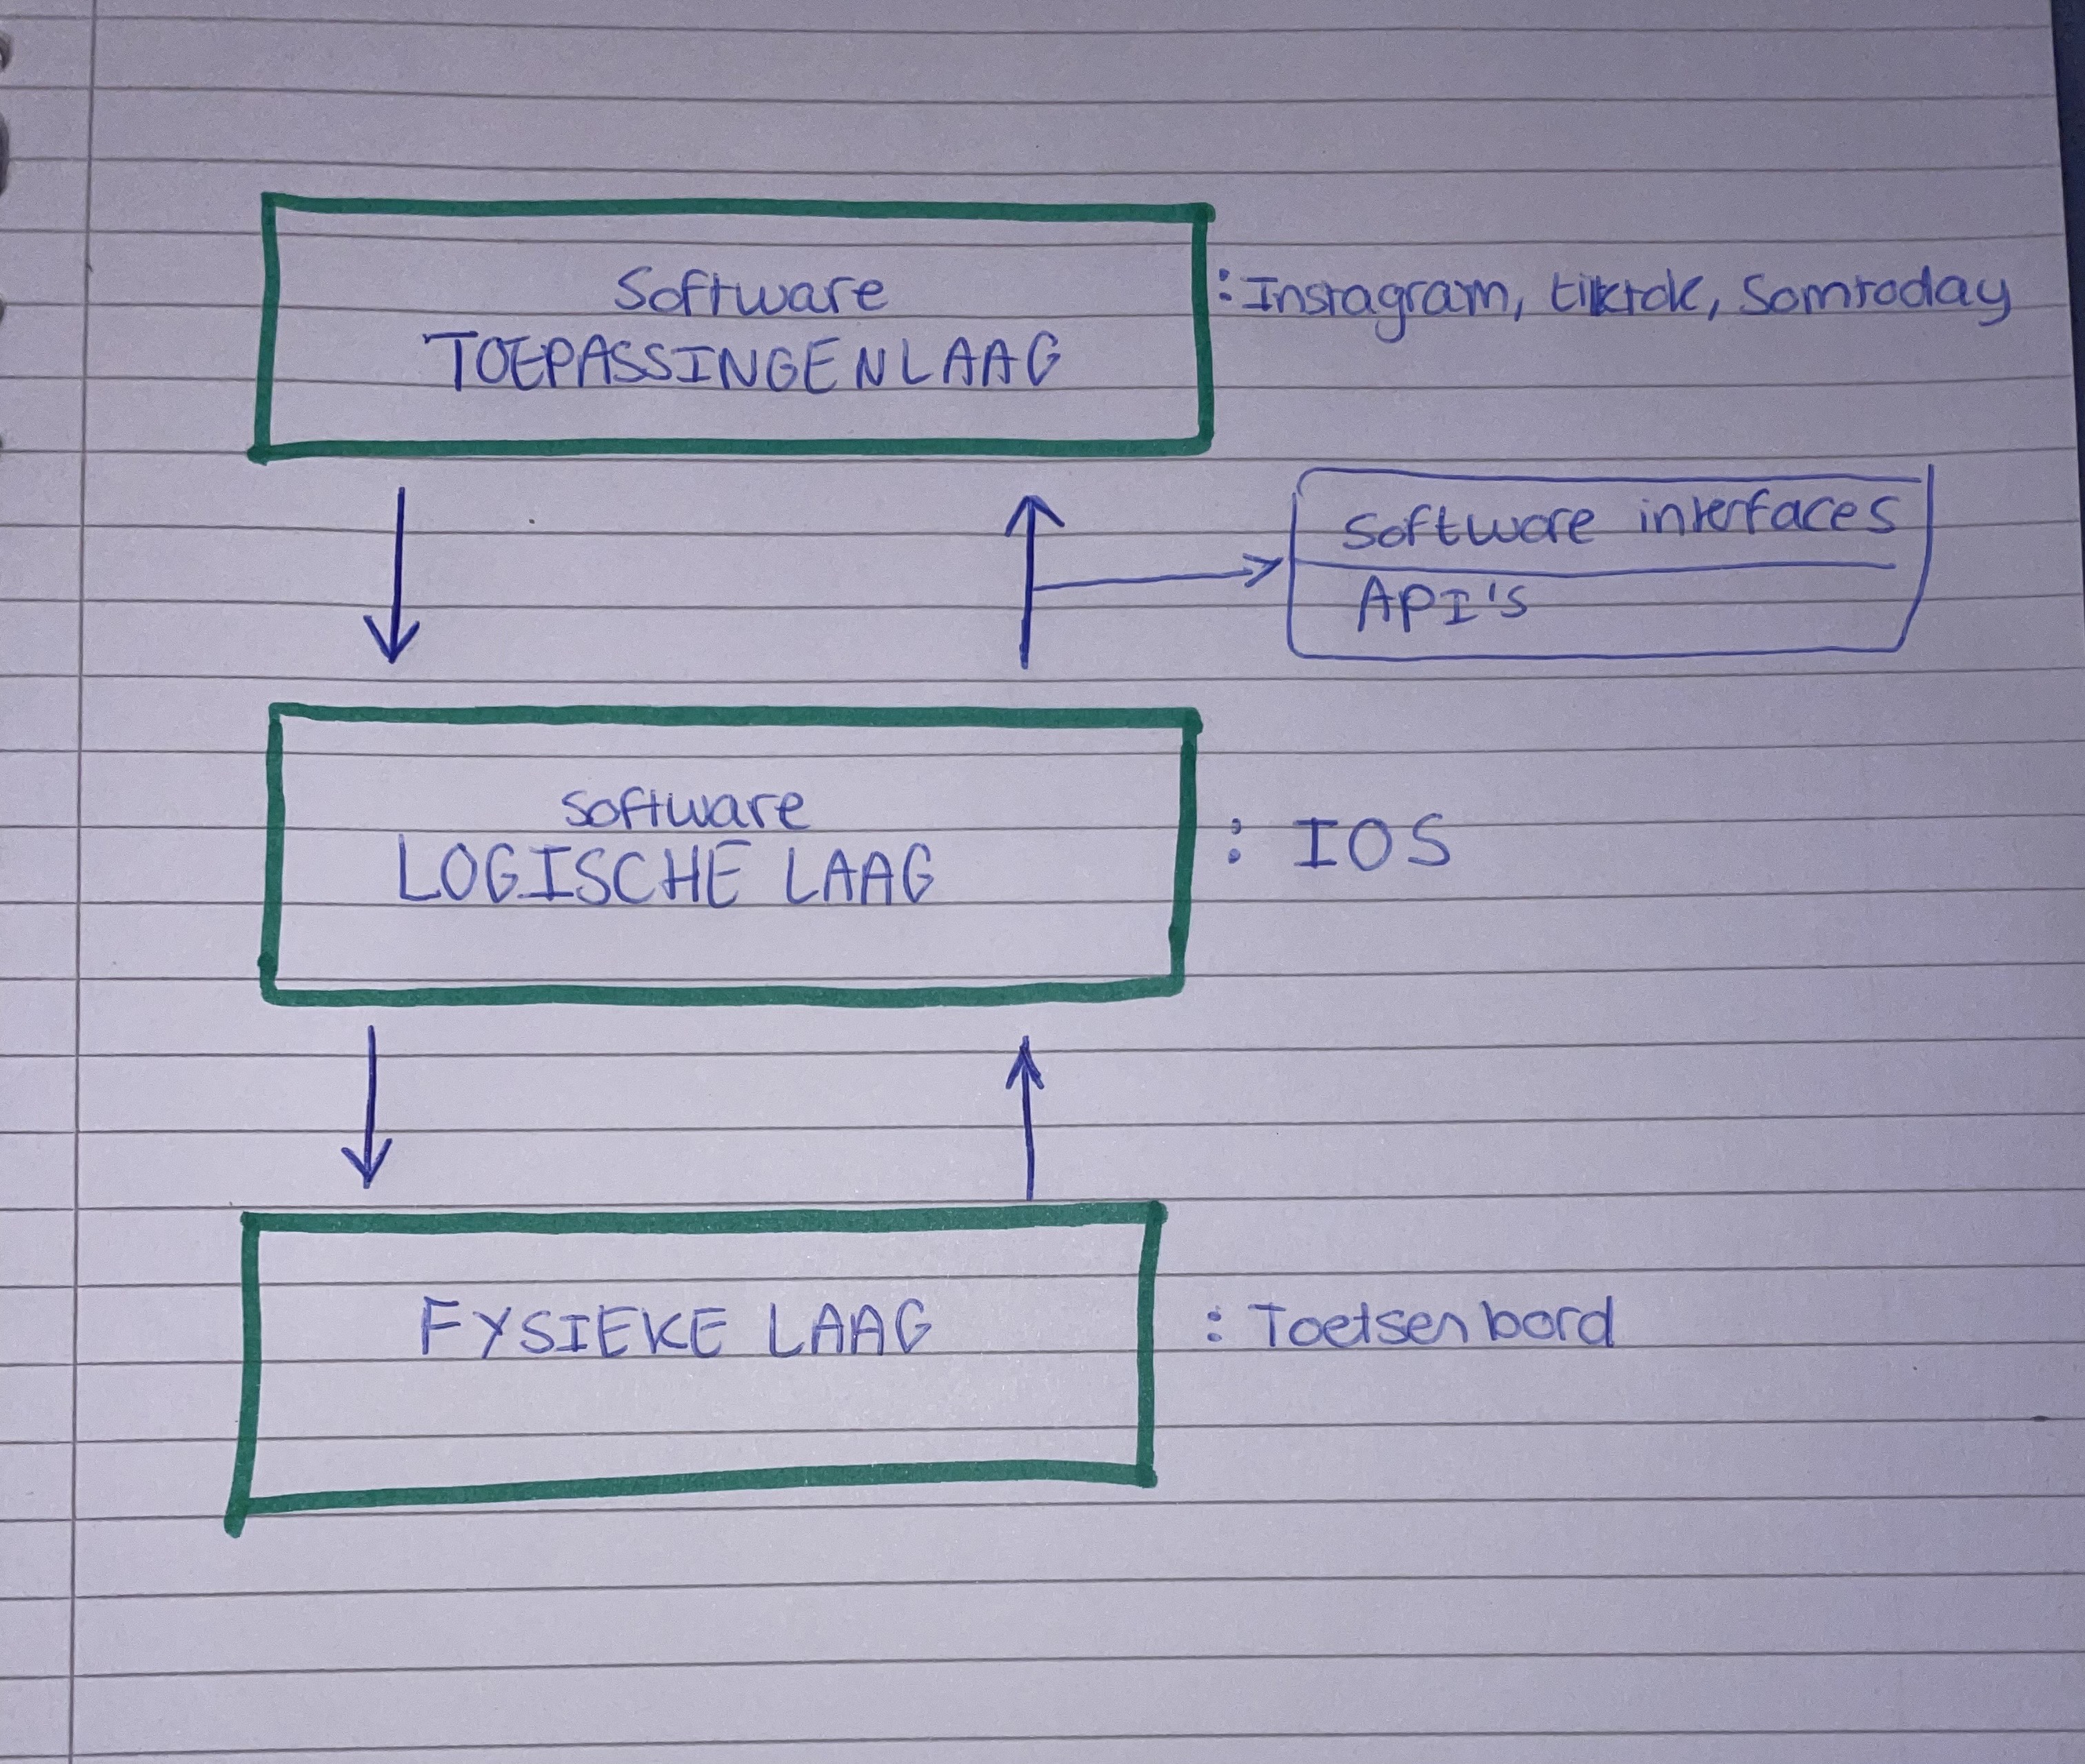 Software
TOEPASSINGENLAAG
: Instagram, tiktok, Somtoday
Software interfaces
API's
Software
LOGISCHE LAAG
: IOS
FYSIEKE LAAG
: Toetsenbord